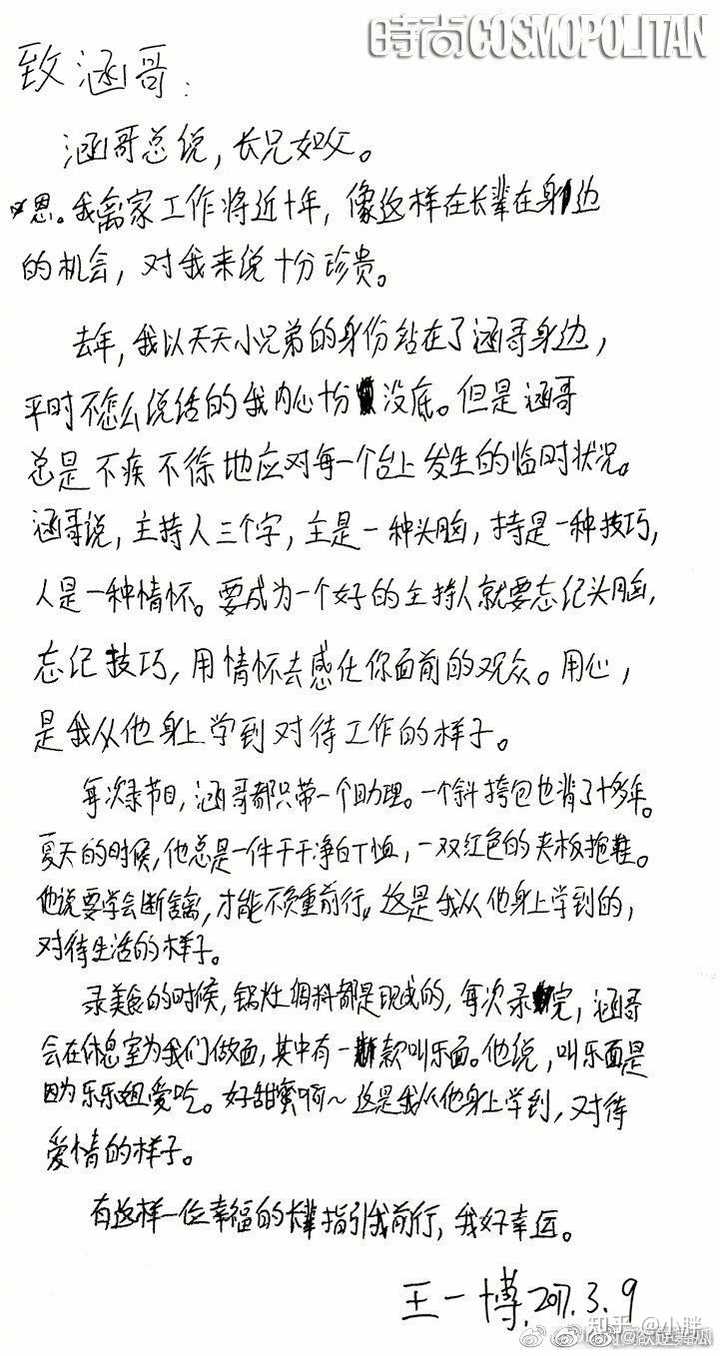 時尚COSMOPOLITAN
致涵哥：
涵哥总说，长兄如父。
恩。我离家工作将近十年，像这样在长辈在身边
的机会，对我来说十分珍贵。
去年，我以天天小兄弟的身份站在了涵哥身边，
平时不怎么说话的我内心十份没底。但是涵哥
总是不疾不徐地应对每一个台上发生的临时状况。
涵哥说，主持人三个字，主是一种头脑，持是一种技巧，
人是一种情怀。要成为一个好的主持人就要忘记头脑，
忘记技巧，用情怀去感住你面前的观众。用心，
是我从他身上学到对待工作的样子。
每次录节目，涵哥都只带一个助理。一个斜挎包也背了十多年。
夏天的时候，他总是一件干干净白T恤，一双红色的夹板拖鞋。
他说要学会断舍离，才能不负重前行。这是我从他身上学到的，
对待生活的样子。
录美食的时候，锅灶调料都是现成的，每次录完，涵哥
会在休息室为我们做面，其中有一款叫乐面。他说，叫乐面是
因为乐乐姐爱吃。好甜蜜啊～这是我从他身上学到，对待
爱情的样子。
有这样一位幸福的长辈指引我前行，我好幸运。
王一博.2017.3.9
知乎 @小胖